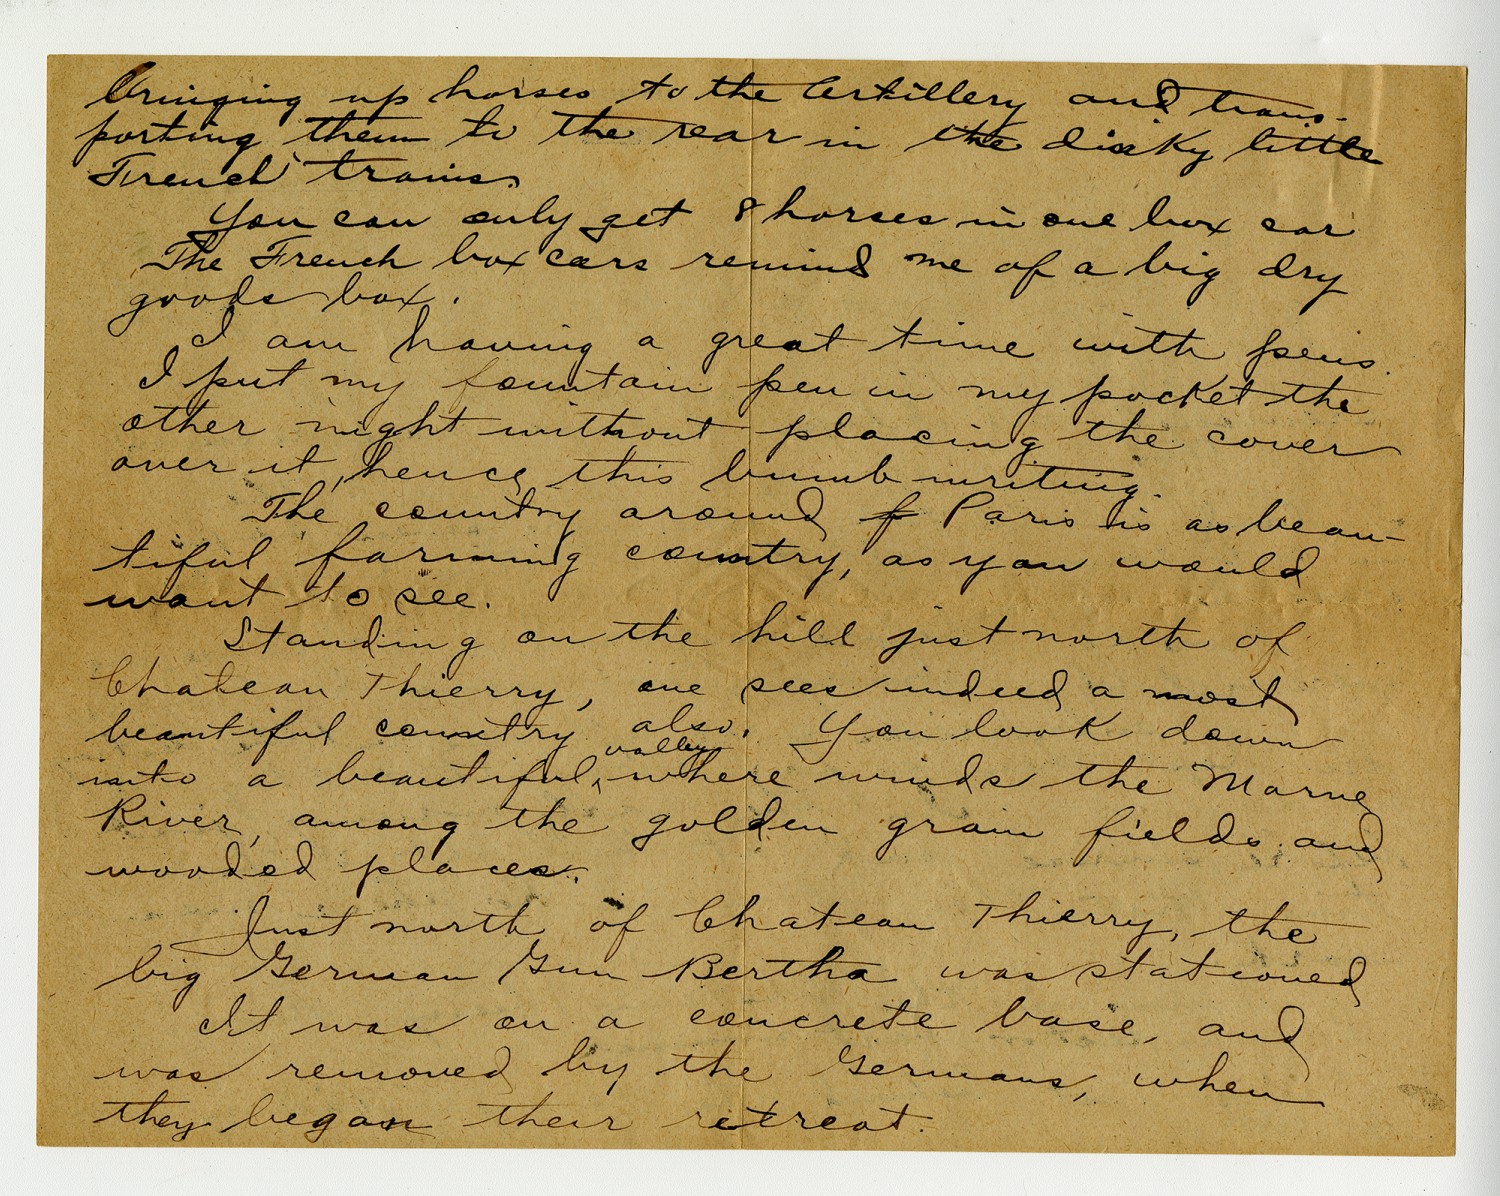 bringing up horses to the Artillery and trans-
porting them to the rear in the dinky little
French trains.
You can only get 8 horses in one box car
The French box cars remind me of a big dry
goods box.
I am having a great time with pens.
I put my fountain pen in my pocket the
other night without placing the cover
over it, hence this bumb writing.
The country around f Paris is as beau-
tiful farming country, as you would
want to see.
Standing on the hill just north of
Chateau Thierry, one sees indeed a most
beautiful country also. You look down
into a beautiful valley where winds the Marne
River, among the golden grain fields and
wooded places.
Just north of Chateau Thierry, the
big German Gun Bertha was stationed
It was on a concrete base, and
was removed by the Germans, when
they began their retreat.